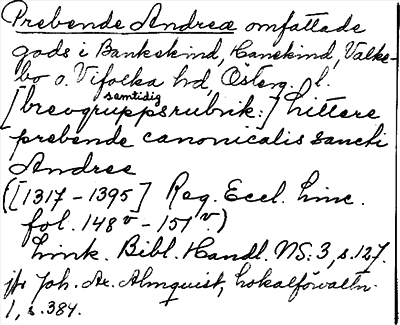 Prebende Andreæ omfattade
gods i Bankekind, Hanekind, Valke-
bo o. Vifolka hd, Österg. l.
[samtidig brevgruppsrubrik:] Littere
prebende canonicalis sancti
Andree
([1317-1395] Reg. Eccl. Linc.
fol. 148v - 151v.)
Link. Bibl. Handl. NS. 3, s. 127.
jfr Joh. Ax. Almquist, Lokalförvaltn.
1, s. 384.